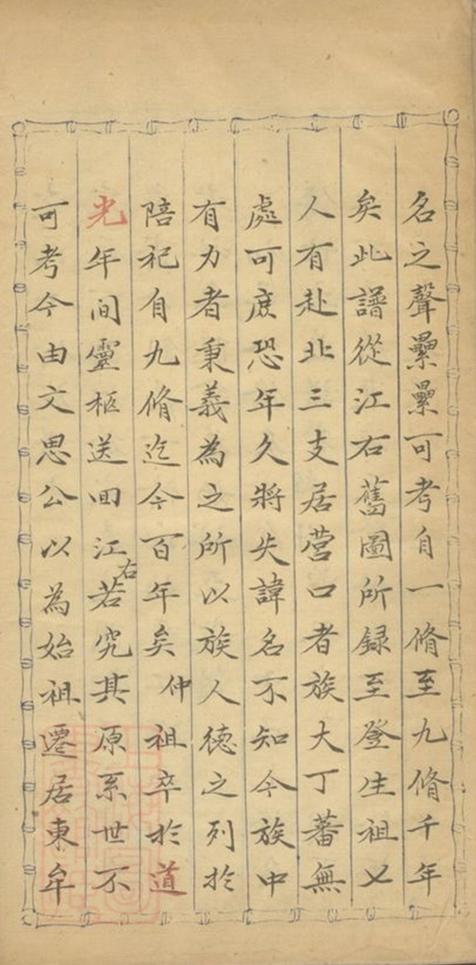 名之聲纍纍可考自一脩至九脩千年
矣此譜從江右舊圖所録至登生祖乂
人有赴北三支居營口者族大丁蕃無
處可庶恐年久將失諱名不知今族中
有力者秉義為之所以族人德之列於
陪祀自九脩迄今百年矣仲祖卒於道
光年间靈柩送回江右若究其原系世不
可考今由文思公以為始祖遷居東牟